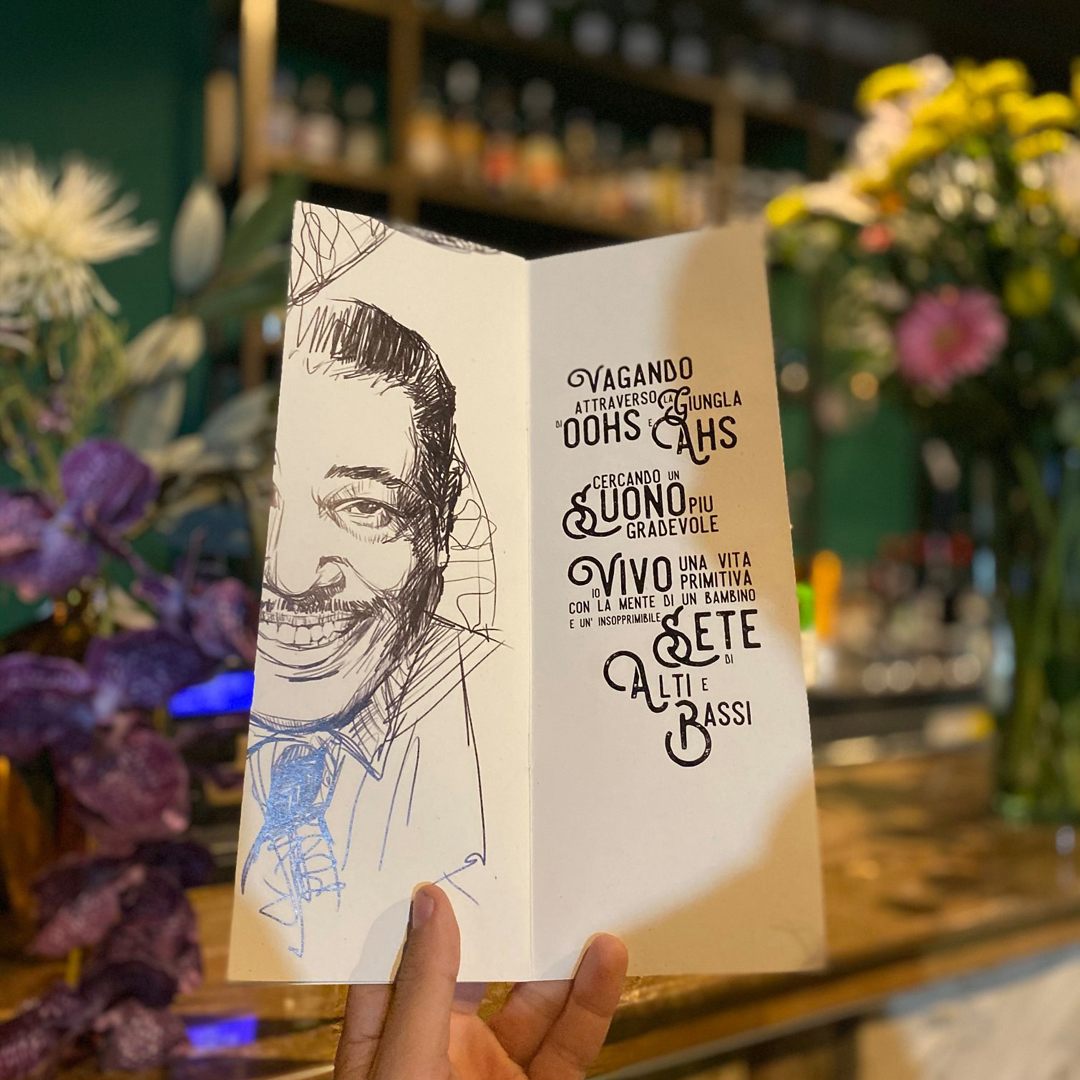 VAGANDO
ATTRAVERSO LA GIUNGLA
DI OOHS E AHS
CERCANDO UN
SUONO PIU
GRADEVOLE
IO VIVO UNA VITA
PRIMITIVA
CON LA MENTE DI UN BAMBINO
E UN' INSOPPRIMIBILE SETE
DI
ALTI E
BASSI